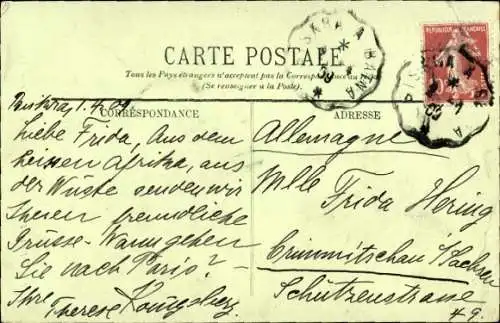 CARTE POSTALE
Tous les Pays étrangers n'acceptent pas la Correspondance au
(Se renseigner à la Poste).
REPUBLIQUE FRANÇAISE
BISKRA A
1.4.09
CORRESPONDANCE
Liebe Frida, Aus dem
heissen Afrika, aus
der Wüste senden wir
Ihnen freundliche
Grüsse. Wann gehen
Sie nach Paris? -
Ihre
Therese Königsberg.
ADRESSE
Allemagne
Mlle Frida Hering
Crimmitschau i/Sachsen
Schützenstrasse
49.